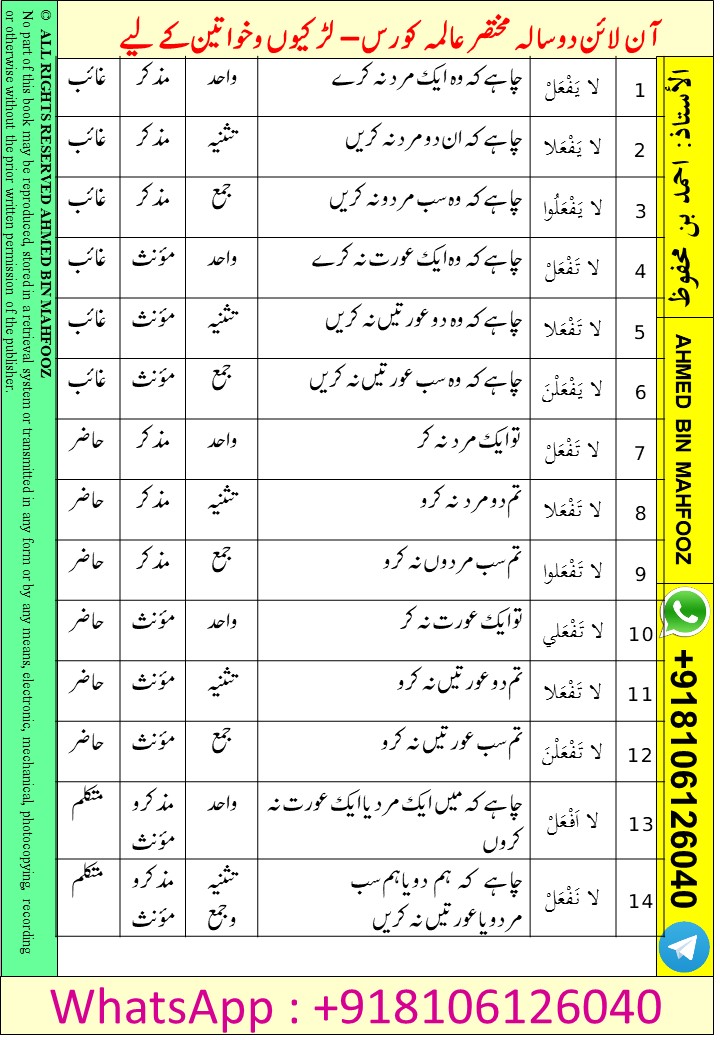 آن لائن دو سالہ مختصر عالمہ کورس – لڑکیوں و خواتین کے لیے
1 لا يَفْعَلْ چاہے کہ وہ ایک مرد نہ کرے واحد مذکر غائب
2 لا يَفْعَلا چاہے کہ ان دو مرد نہ کریں تثنیہ مذکر غائب
3 لا يَفْعَلُوا چاہے کہ وہ سب مرد ونہ کریں جمع مذکر غائب
4 لا تَفْعَلْ چاہے کہ وہ ایک عورت نہ کرے واحد مؤنث غائب
5 لا تَفْعَلا چاہے کہ وہ دو عورتیں نہ کریں تثنیہ مؤنث غائب
6 لا يَفْعَلْنَ چاہے کہ وہ سب عورتیں نہ کریں جمع مؤنث غائب
7 لا تَفْعَلْ تو ایک مرد نہ کر واحد مذکر حاضر
8 لا تَفْعَلا تم دو مرد نہ کرو تثنیہ مذکر حاضر
9 لا تَفْعَلوا تم سب مردوں نہ کرو جمع مذکر حاضر
10 لا تَفْعَلي تو ایک عورت نہ کر واحد مؤنث حاضر
11 لا تَفْعَلا تم دو عورتیں نہ کرو تثنیہ مؤنث حاضر
12 لا تَفْعَلْنَ تم سب عورتیں نہ کرو جمع مؤنث حاضر
13 لا اَفْعَلْ چاہے کہ میں ایک مرد یا ایک عورت نہ واحد مذکر و متکلم
کروں مؤنث
14 لا نَفْعَلْ چاہے کہ ہم دو یا ہم سب تثنیہ مذکر و متکلم
مرد یا عورتیں نہ کریں و جمع مؤنث
الأستاذ: احمد بن محفوظ
AHMED BIN MAHFOOZ
+918106126040
© ALL RIGHTS RESERVED AHMED BIN MAHFOOZ
No part of this book may be reproduced, stored in a retrieval system or transmitted in any form or by any means, electronic, mechanical, photocopying, recording
or otherwise without the prior written permission of the publisher.
WhatsApp : +918106126040